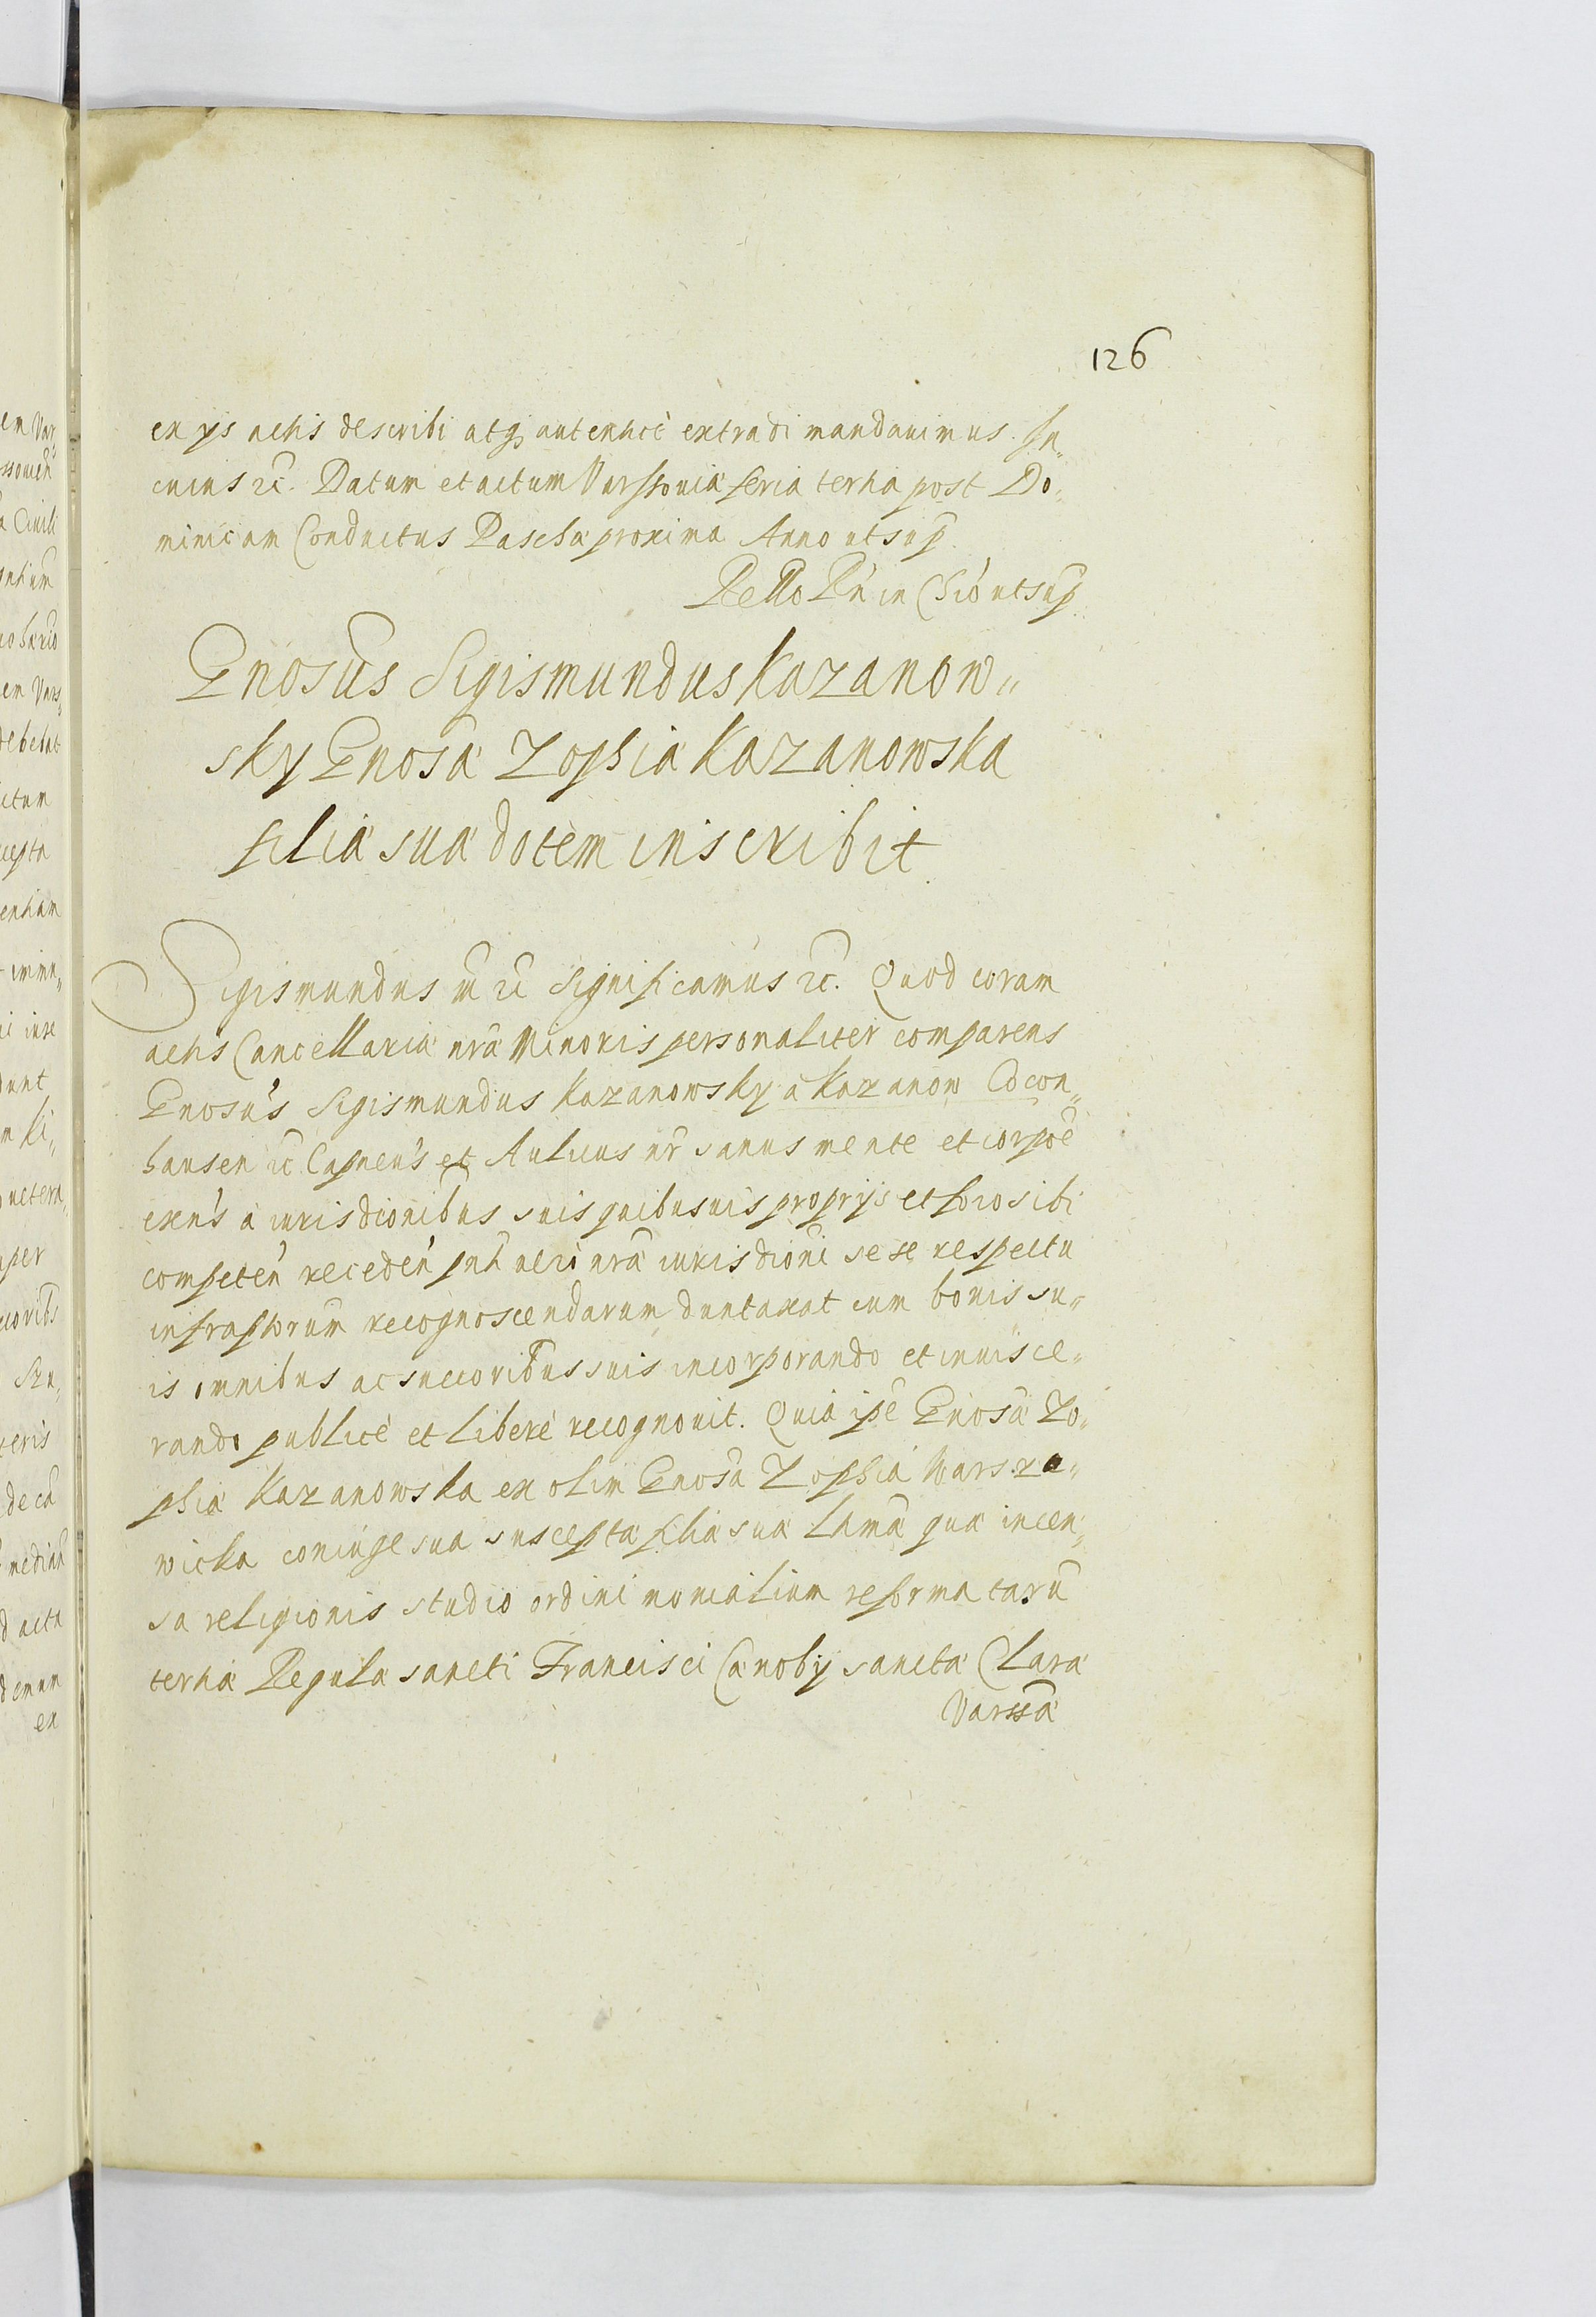 126
ex ijs actis describi atq; autenticè extradi mandauimus. In
cuius rc. Datum et actum Varssouiæ feria tertia post Do,,
minicam Conductus Paschæ proxima Anno ut sup
Relló Rñ in Chió ut sup
Gnosus Sigismundus Kazanow,,
sky Gnosæ Zophiæ Kazanowska
filiæ suæ dotem inscribit
Sigismundus rc Significamus rc. Quod coram
actis Cancellariæ nræ Minoris personaliter comparens
Gnosus Sigismundus Kazanowsky à Kazanow Cocon,,
hausen rc Capneus et Aulicus nr sanus mente et corpoe
exens à iurisdionibus suis quibusuis proprijs et foro sibi
competen receden pnti uero nræ iurisdioni sese respectu
infraptorum recognoscendarum duntaxat cum bonis su,,
is omnibus ac succoribus suis incorporando et inuisce,,
rando publicè et liberè recognouit. Quia ipe Gnosæ Zo,,
phiæ Kazanowska ex olim Gnosa Zophia Warsze,,
wicka coniuge sua suscepta filiæ suæ Lamæ quæ incen,,
sa religionis studio ordini monialium reformatarū
tertiæ Regulæ sancti Francisci Cænobij sanctæ Claræ
Varssæ
em Var,,
ssouien
a Ciuili
debebat
cepta
immu,,
ri iure
dunt
uper
teris
de ca
d acta
ex